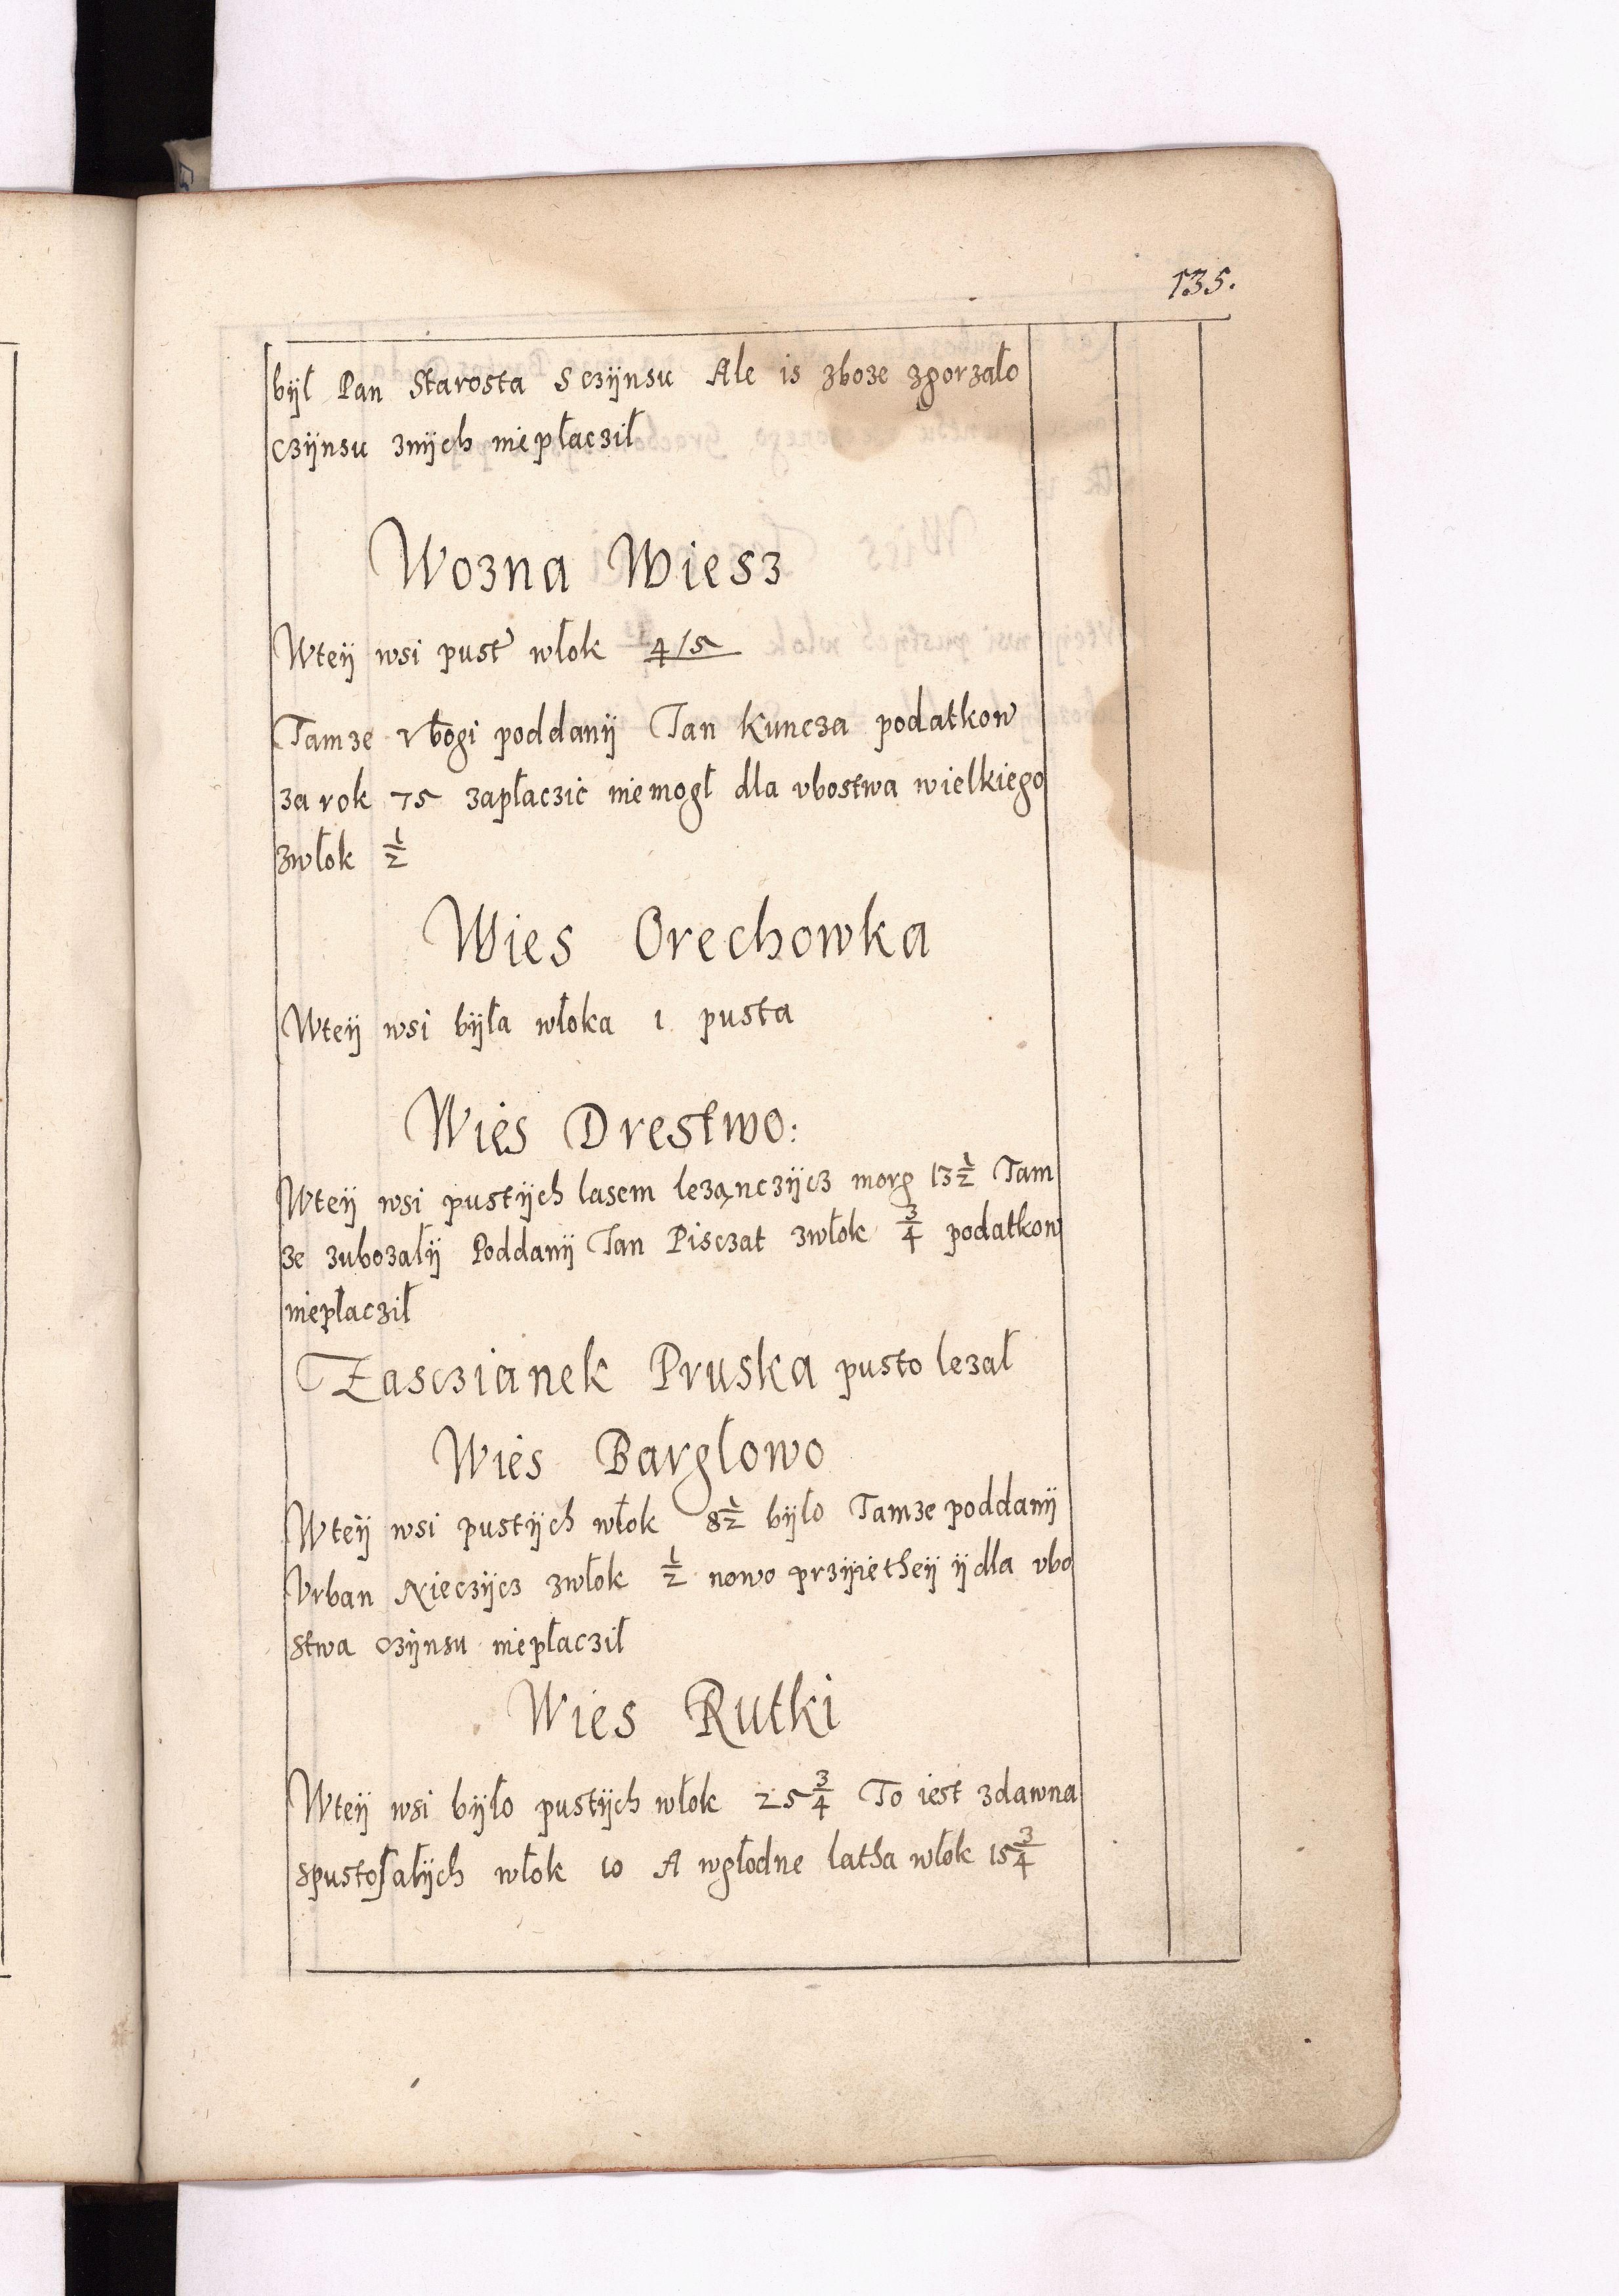 135.
bÿł Pan Starosta S czÿnsu Ale is zboze zgorzało
czÿnsu znÿch niepłacził
Wozna Wiesz
Wteÿ wsi pust włok
Tamze vbogi poddanÿ Jan Kuncza podatkow
za rok 75 zapłaczic niemogł dla vbostwa wielkiego
zwłok ½
Wies Orechowka
Wteÿ wsi bÿła włoka 1 pusta
Wies Drestwo:
Wteÿ wsi pustÿch lasem lezącnczÿcz morg 13½ Tam
ze zubozałÿ Poddanÿ Jan Pisczat zwłok ¾ podatkow
niepłacził
Zasczianek Pruska pusto lezał
Wies Bargłowo
Wteÿ wsi pustÿch włok 8½ bÿło Tamze poddanÿ
Vrban Nieczÿcz zwłok ½ nowo przÿietheÿ ÿ dla vbo
stwa czÿnsu niepłacził
Wies Rutki
Wteÿ wsi bÿło pustÿch włok 25¾ To iest zdawna
spustoſałÿch włok 10 A wgłodne latha włok 15¾